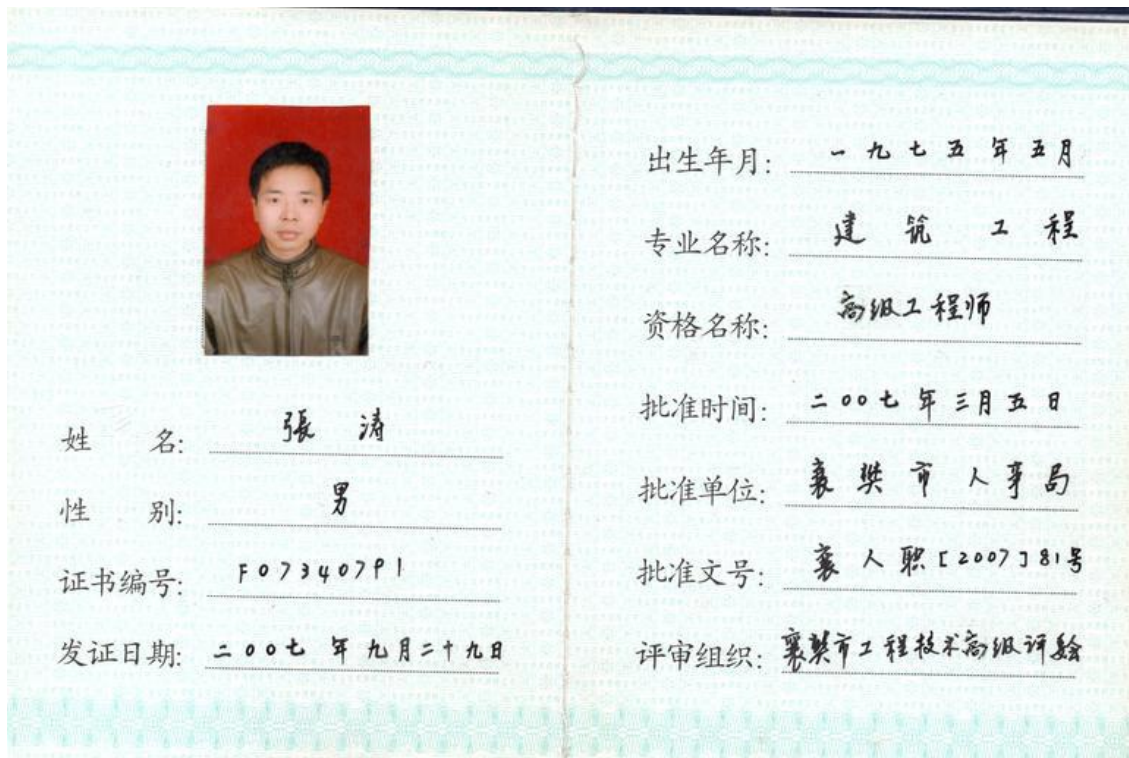 姓 名: 張 涛
性 别: 男
证书编号: F07340791
发证日期: 二00七 年 九月二十九日
出生年月: 一九七五年五月
专业名称: 建筑工程
资格名称: 高级工程师
批准时间: 二00七年三月五日
批准单位: 襄樊市人事局
批准文号: 襄人职[2007]81号
评审组织: 襄樊市工程技术高级评